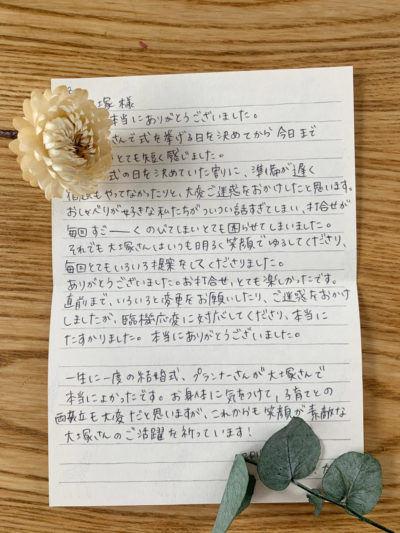 大塚様
本当にありがとうございました。
さんで式を挙げる日を決めてから今日まで
とても短く感じました。
式の日を決めていた割りに、準備が遅く
もやってなかったりと、大変ご迷惑をおかけしたと思います。
おしゃべりが好きな私たちがついつい話すぎてしまい、打合せが
毎回すごーーくのびてしまいとても困らせてしまいました。
それでも大塚さんはいつも明るく笑顔でゆるしてくださり、
毎回とてもいろいろ提案をしてくださりました。
ありがとうございました。お打合せ、とても楽しかったです。
直前まで、いろいろと変更をお願いしたり、ご迷惑をおかけ
しましたが、臨機応変に対応してくださり、本当に
たすかりました。本当にありがとうございました。
一生に一度の結婚式、プランナーさんが大塚さんで
本当によかったです。お身体に気をつけて、子育てとの
両立も大変だと思いますが、これからも笑顔が素敵な
大塚さんのご活躍を祈っています!